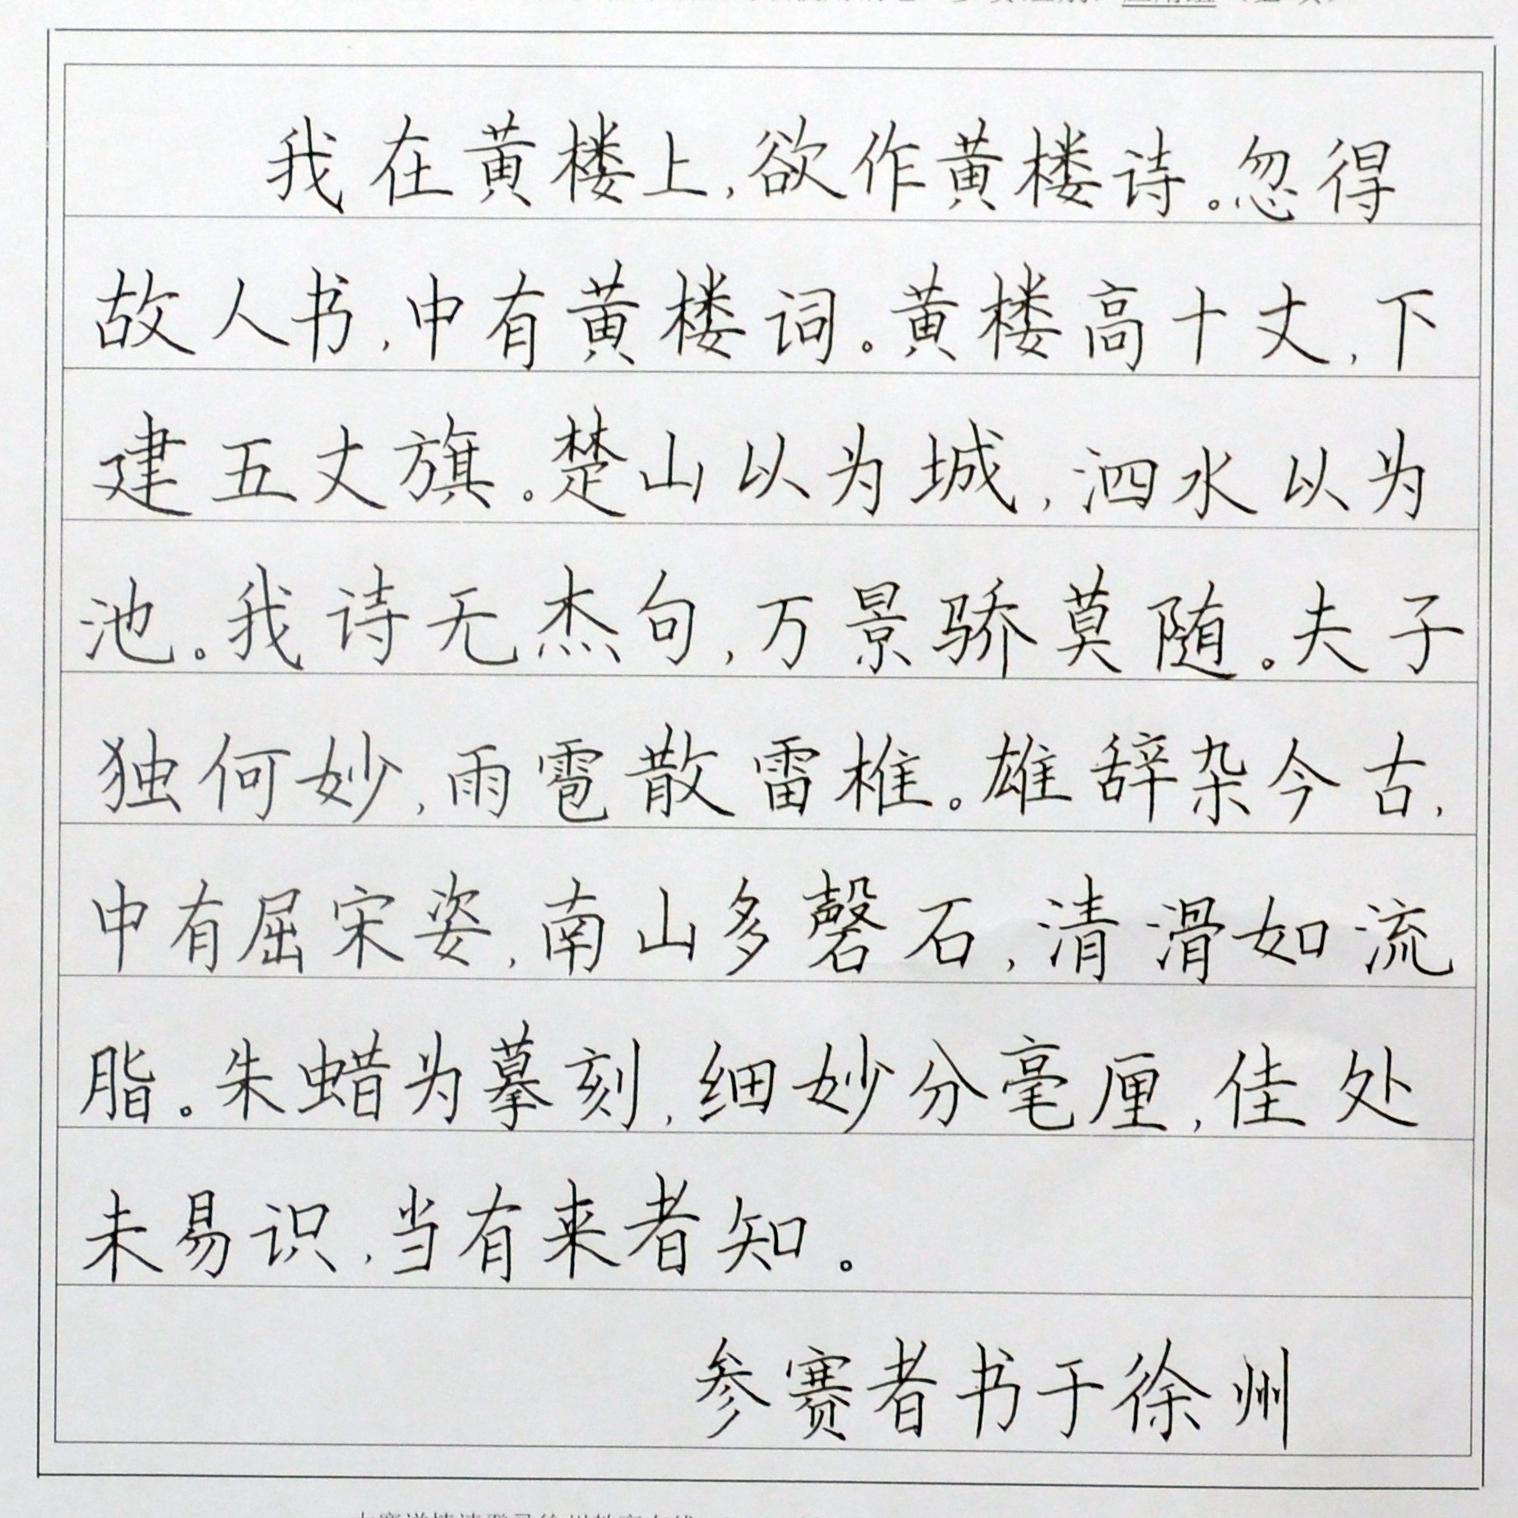 我在黄楼上,欲作黄楼诗。忽得
故人书,中有黄楼词。黄楼高十丈,下
建五丈旗。楚山以为城,泗水以为
池。我诗无杰句,万景骄莫随。夫子
独何妙,雨雹散雷椎。雄辞杂今古,
中有屈宋姿,南山多磬石,清滑如流
脂。朱蜡为摹刻,细妙分毫厘,佳处
未易识,当有来者知。
参赛者书于徐州